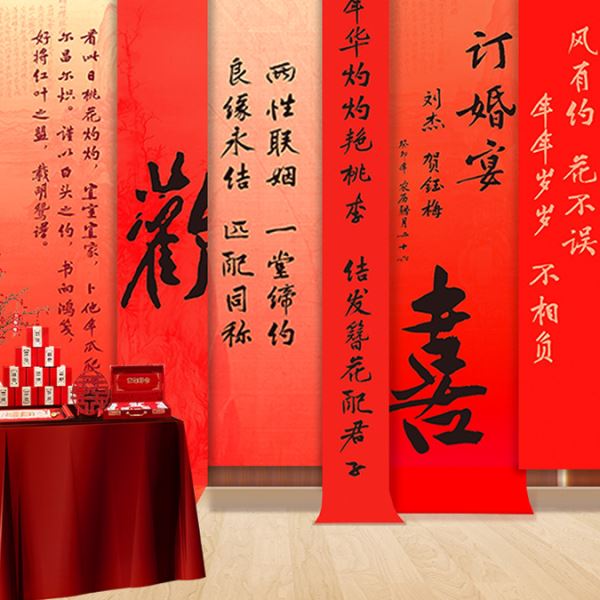 风有约 花不误
年年岁岁 不相负
订婚宴
刘杰 贺钰梅
癸卯年 农历腊月二十六
喜
年华灼灼艳桃李 结发簪花配君子
两性联姻 一堂缔约
良缘永结 匹配同称
看此日桃花灼灼，宜室宜家，卜他年瓜
尔昌尔炽。谨以白头之约，书向鸿笺，
好将红叶之盟，载明鸳谱。